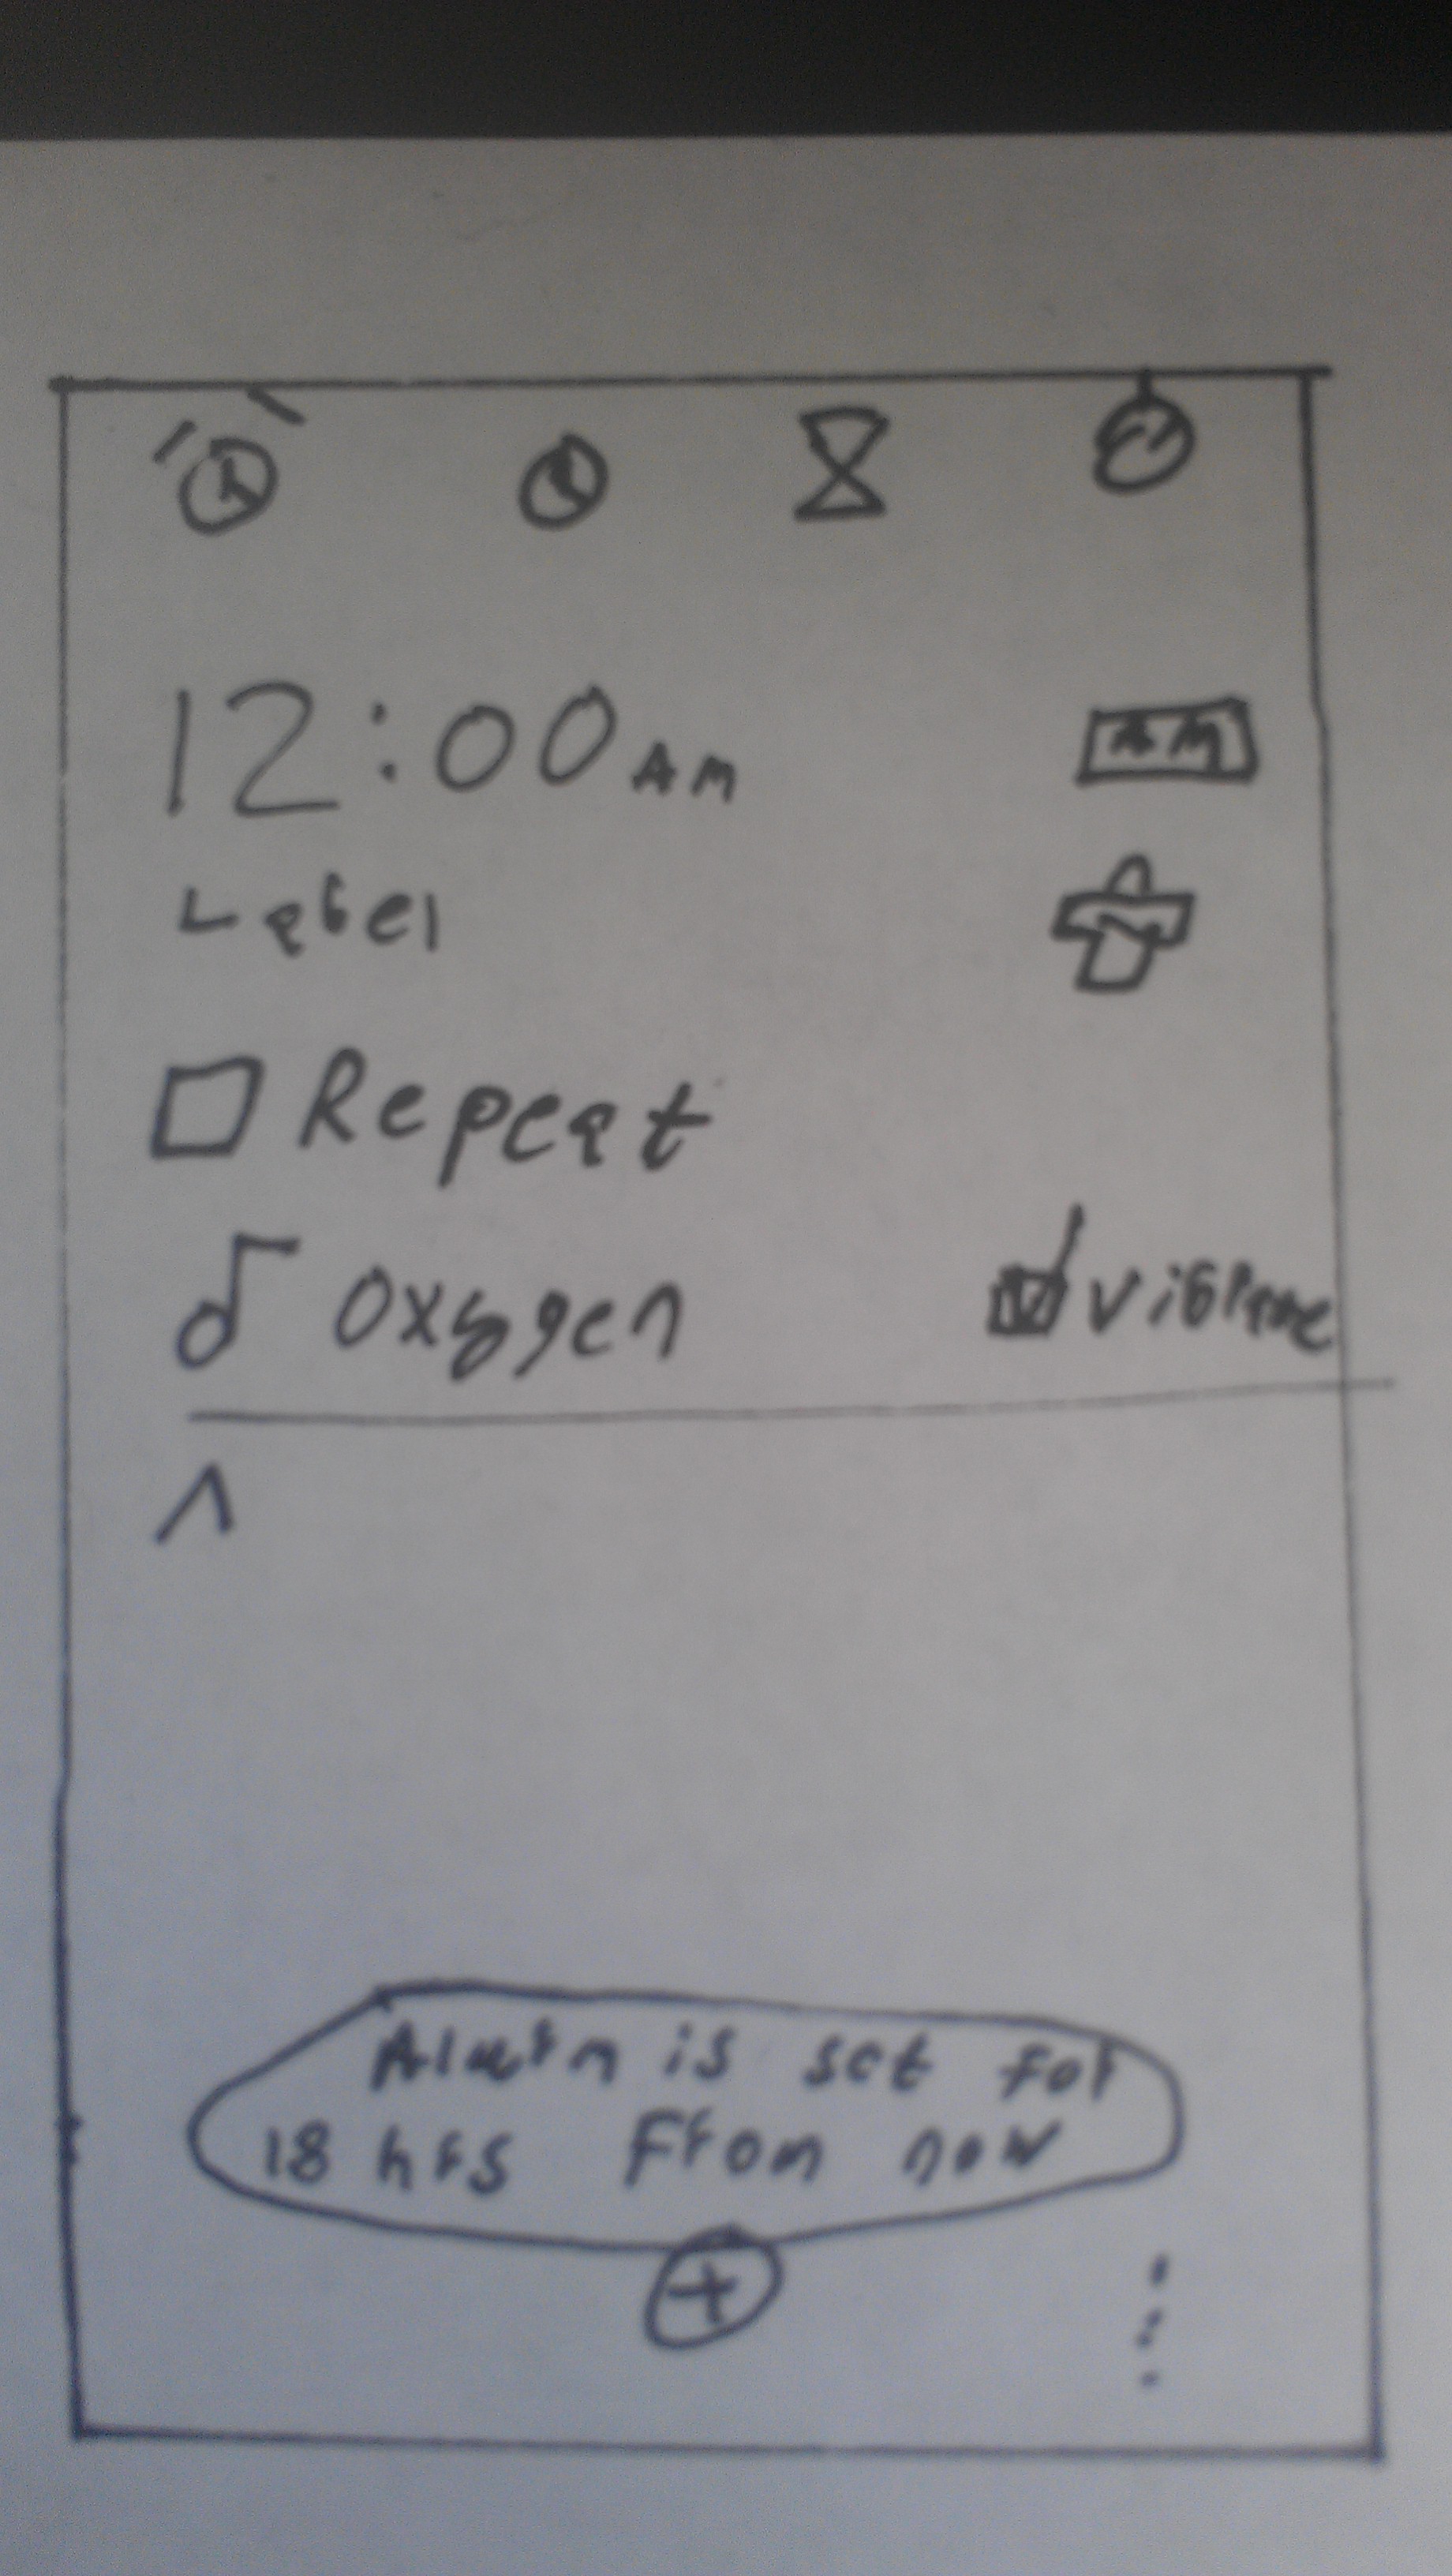 12:00 AM
Label
Repeat
Oxygen
Vibrate
Alarm is set for
18 hrs From now